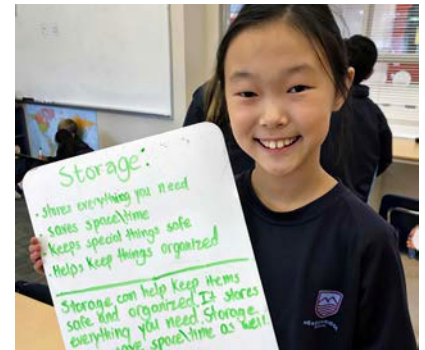 Storage:
· stores everything you need
· saves space\time
· keeps special things safe
· Helps keep things organized
Storage can help keep items
safe and organized. It stores
everything you need. Storage
save space\time as well.